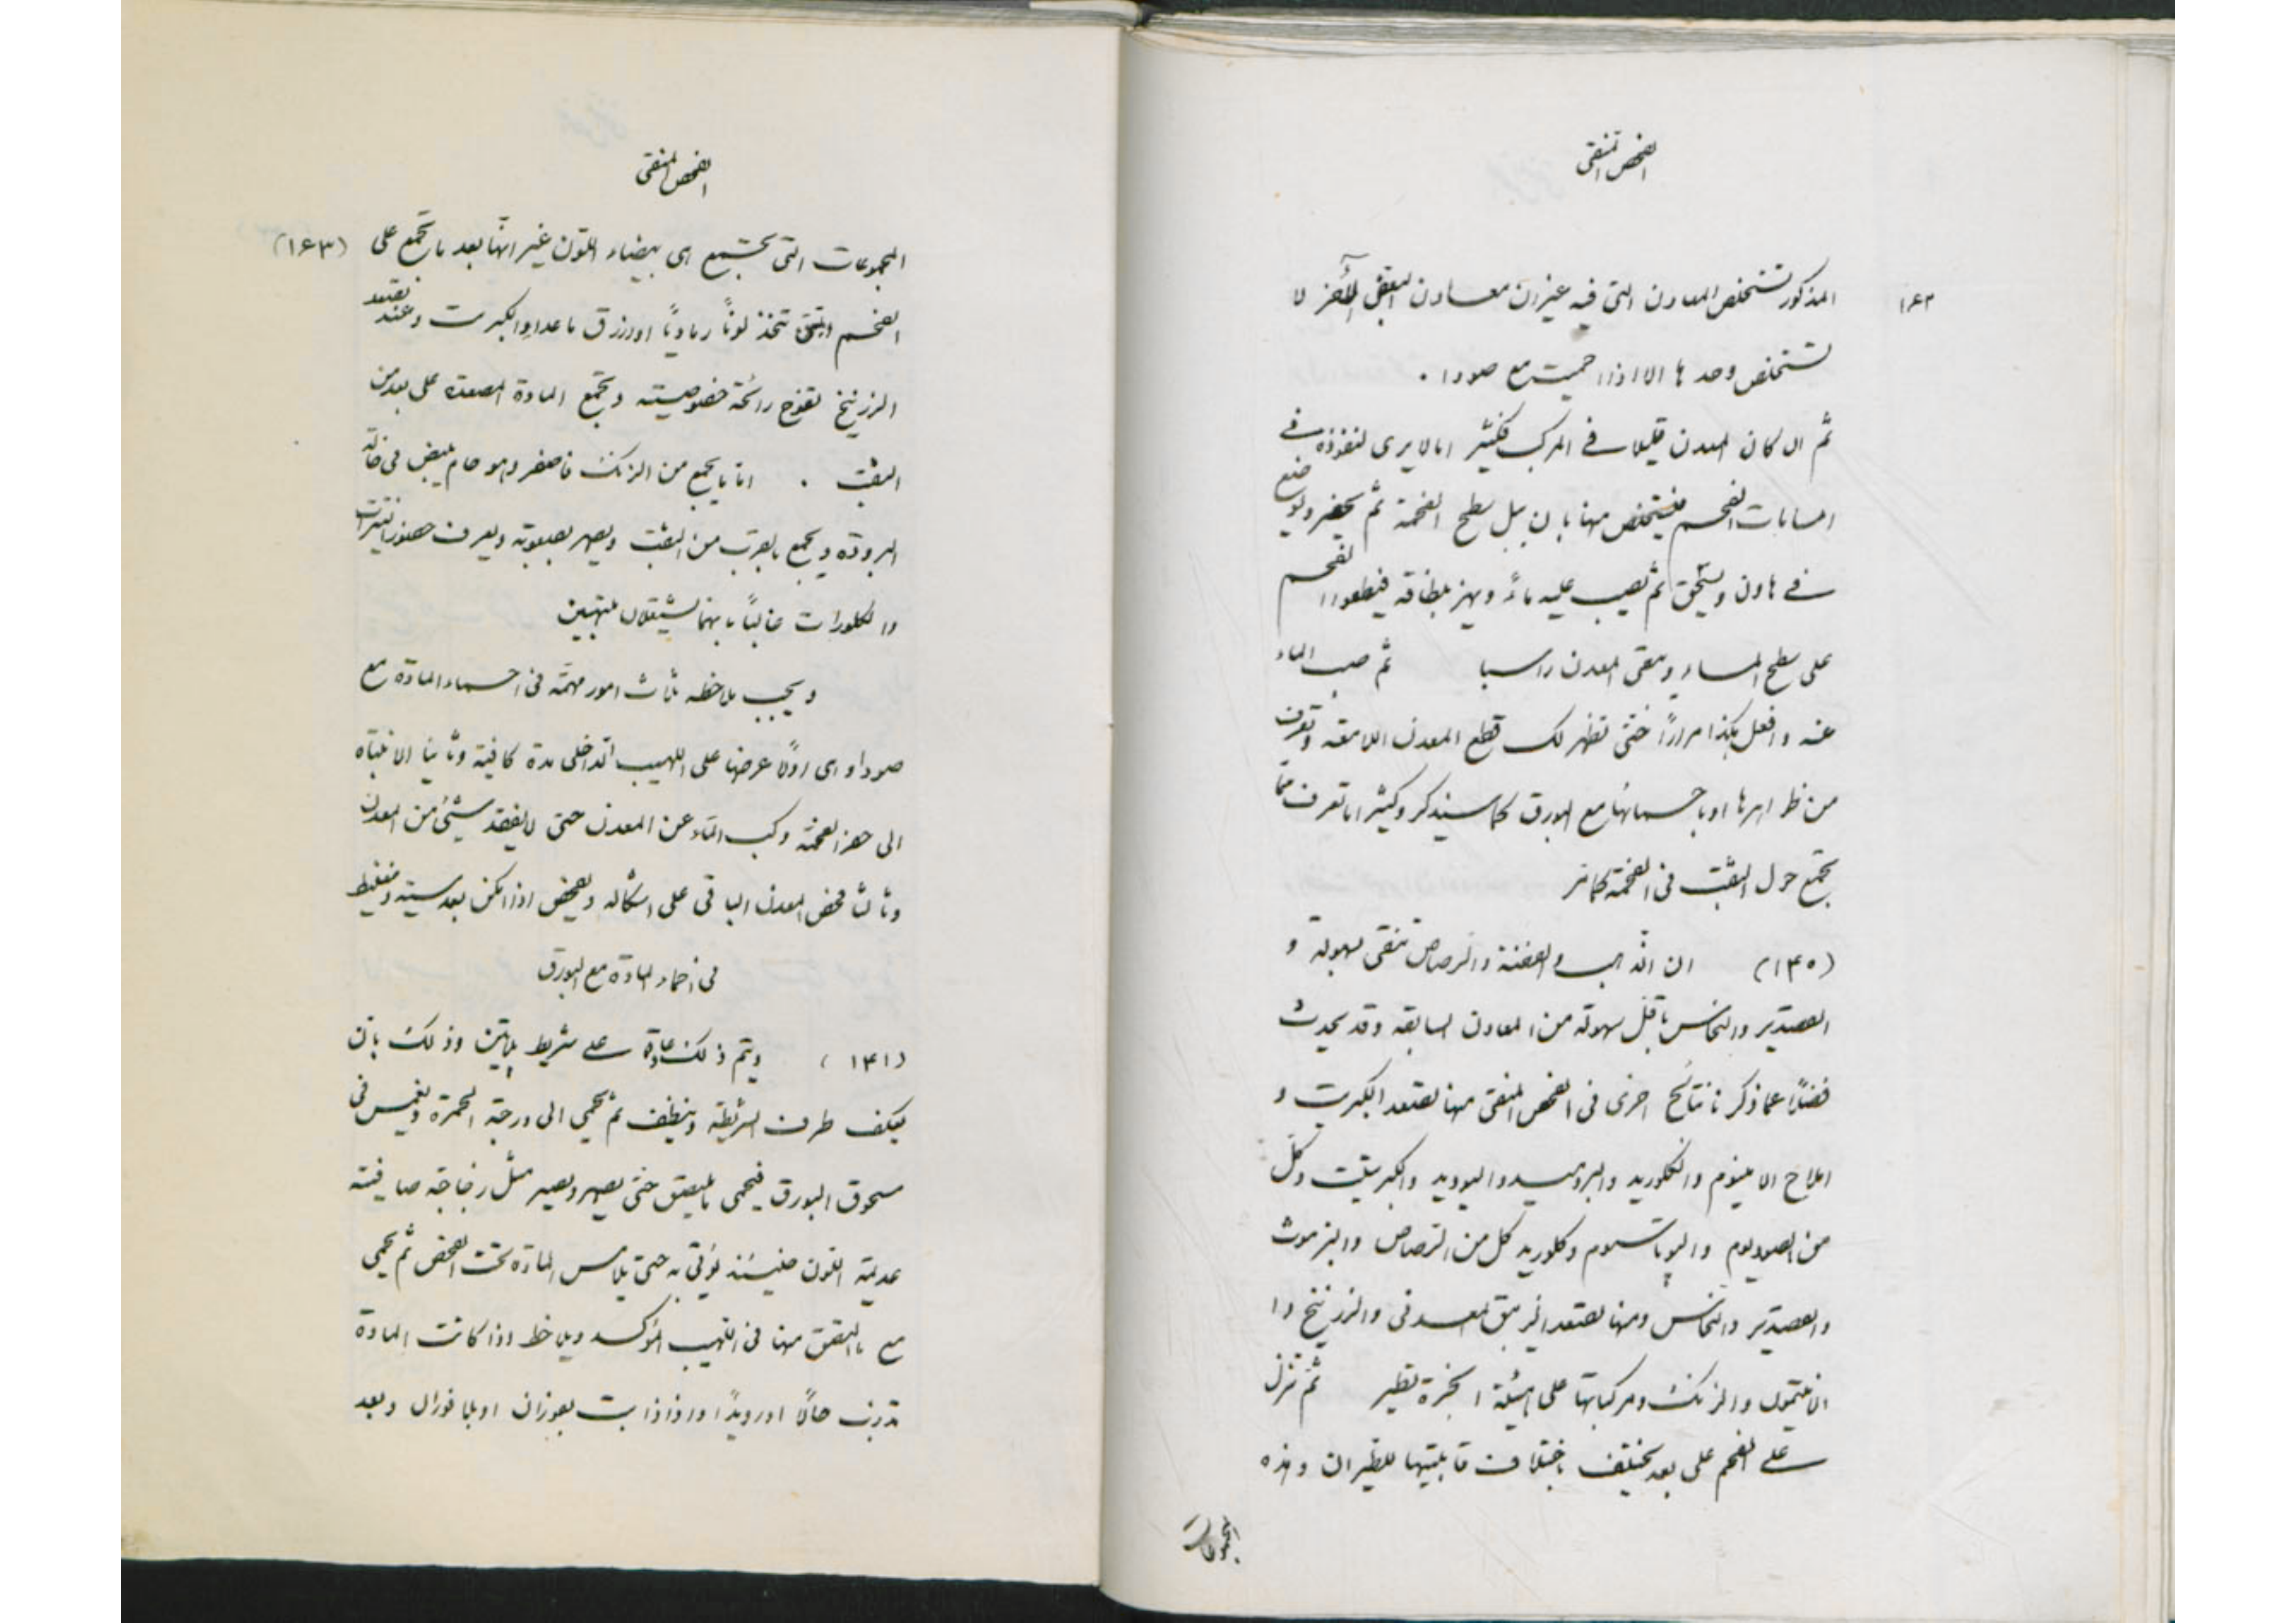 الفحص المنقى
١٦٢
المذكور تستخلص المعادن التى فيه غيران معادن البعض الآخر لا
تستخلص وحدها الا اذا احميت مع صودا .
ثم ان كان المعدن قليلا فى المركب فكثير امالايرى لنفوذه فى
امسامات الفحم فيستخلص منها بان يبل سطح الفحمة ثم يحفر ويوضع
فے هاون ويسحق ثم يصب عليه ماءً ويهز بلطافة فيطفوا الفحم
على سطح الماء ويبقى المعدن راسبا ثم صب الماء
عنه وافعل هكذا مرارًا حتى تظهر لك قطع المعدن اللامعة وتعرف
من ظواهرها او باحمائها مع البورق كما سيذكر وكثيرا ما تعرف مما
تجمع حول الثقب فى الفحمة كما مر
(١٤٠) ان الذهب والفضة والرصاص تنقى بسهولة و
القصدير والنحاس باقل سهولة من المعادن السابقة وقد يحدث
فضلًا عما ذكرنا نتائج اخرى فى الفحص المنقى منها تصعد الكبريت و
املاح الامنيوم والكلوريد والبروميد واليوديد والكبريتيت وكل
من الصوديوم والپوتاسيوم وكلوريد كل من الرصاص والبزموث
والقصدير والنحاس ومنها تصعد الزيبق المعدنى والزرنيخ وا
لانتيمون والزنك ومركباتها على هيئة ابخرة تطير ثم تنزل
علے الفحم على بعد يختلف باختلاف قابليتها للطيران وهذه
المجموعات
الفحص المنقى
المجموعات التى تجتمع هى بيضاء اللون غير انها بعد ما تجمع على (١٦٣)
الفحم وتنقى تتخذ لونًا رماديًا او ازرق ماعدا والكبريت وعند تصعد
الزرنيخ تفوح رائحة خصوصية وتجمع المادة المصعدة على بعد من
الثقب . اما ما يجمع من الزنك فاصفر وهو حام يبيض فى حالة
البرودة ويجمع بالقرب من الثقب ويصهر بصعوبة ويعرف حضور النيترات
والكلورات غالبًا بانهما يشتعلان ملتهبين
ويجب ملاحظه ثلاث امور مهمة فى احماء المادة مع
صودا وهى اولًا عرضها على اللهيب الداخلى مدة كافية وثانيا الانتباه
الى حفر الفحمة وكب الماء عن المعدن حتى لا يفقد شئ من المعدن
وثالثا فحص المعدن الباقى على اشكاله ويفحص اذا امكن بعد
فى احماء المادة مع البورق
(١٤١) ويتم ذلك عادة علے شريط پلاتين وذلك بان
يعكف طرف الشريطة وينظف ثم يحمى الى درجة الحمرة ويغمس فى
مسحوق البورق فيحمى ما يلتصق حتى يصهر ويصير مثل زجاجة صافية
عديمة اللون فحينئذ يؤتى به حتى يلامس المادة تحت الفحص ثم يحمى
مع ما التصق منها فى اللهيب المؤكسد ويلاحظ اذا كانت المادة
تذوب حالًا او رويدًا واذا ذابت بفوران او بلا فوران وبعد